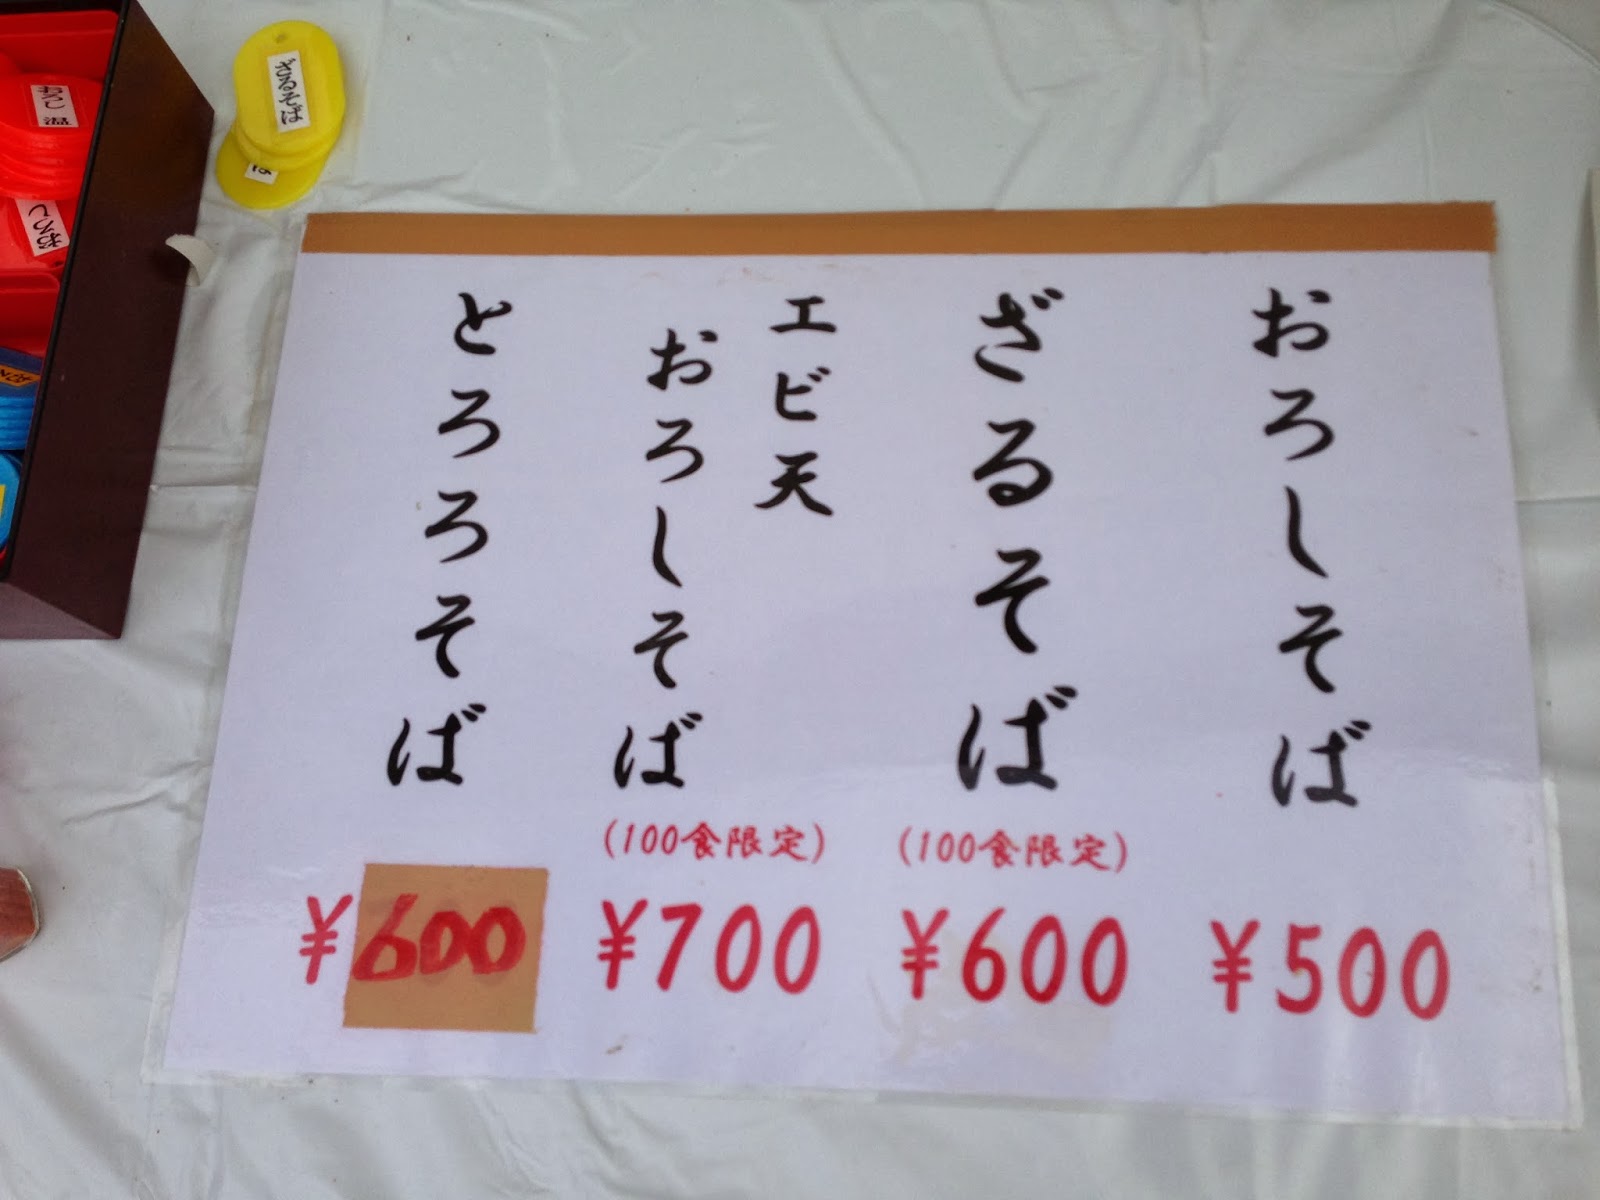 おろしそば
¥500
ざるそば
(100食限定)
¥600
エビ天
おろしそば
(100食限定)
¥700
とろろそば
¥600
ざるそば
おろし 温
おろし